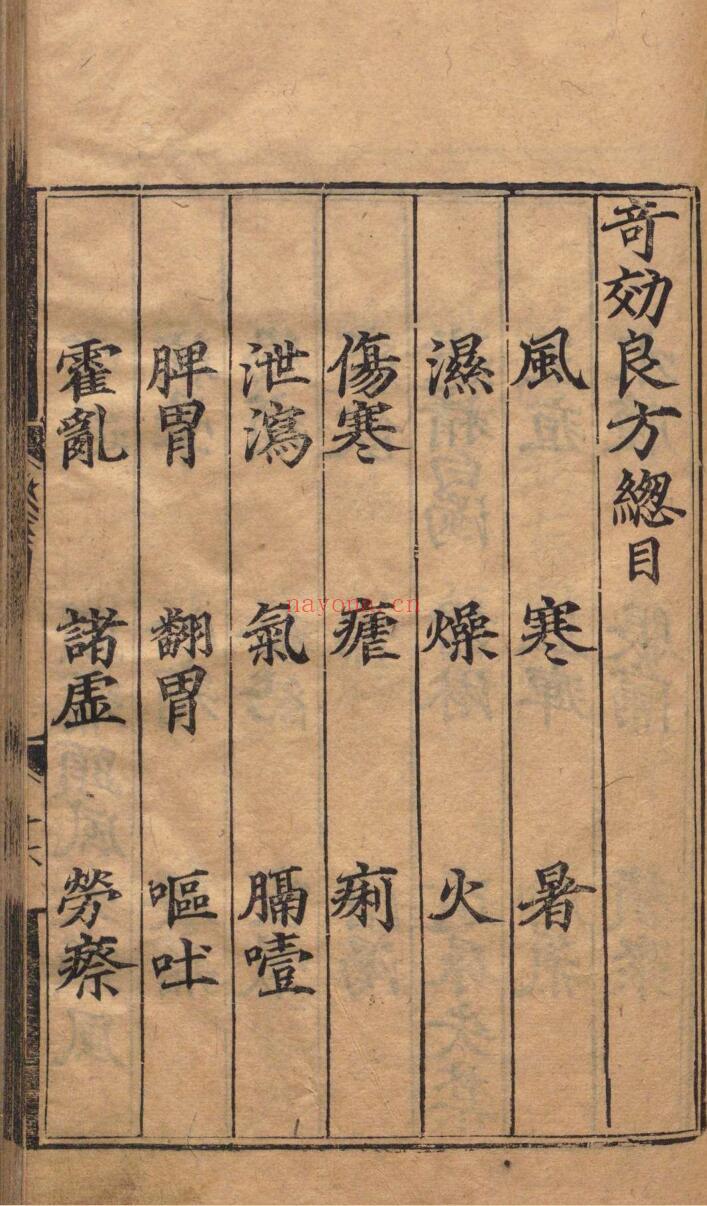 奇効良方緫目
風 寒 暑
濕 燥 火
傷寒 瘧 痢
泄瀉 氣 膈噎
脾胃 翻胃 嘔吐
霍亂 諸虛 勞瘵
nayona.cn